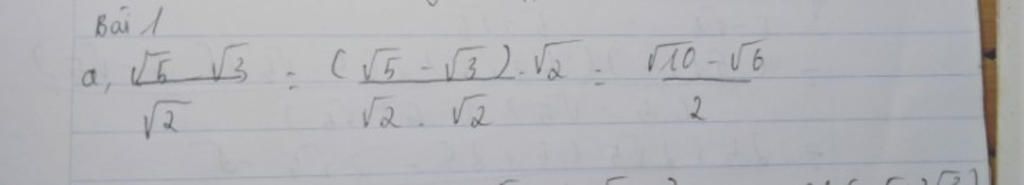 Bài 1
a, \frac{\sqrt{5} \sqrt{3}}{\sqrt{2}} = \frac{(\sqrt{5} - \sqrt{3}) . \sqrt{2}}{\sqrt{2} . \sqrt{2}} = \frac{\sqrt{10} - \sqrt{6}}{2}